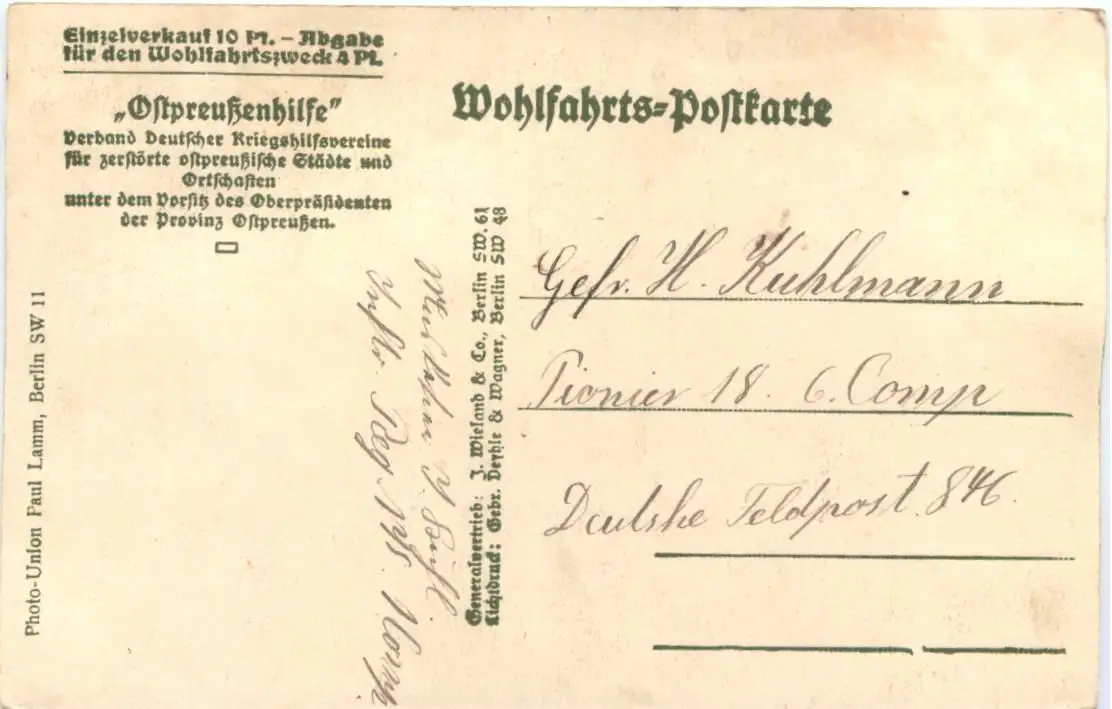 Einzelverkauf 10 Pf. – Abgabe
für den Wohlfahrtszweck 4 Pf.
„Ostpreußenhilfe”
Verband Deutscher Kriegshilfsvereine
für zerstörte ostpreußische Städte und
Ortschaften
unter dem Vorsitz des Oberpräsidenten
der Provinz Ostpreußen.
Wohlfahrts-Postkarte
Photo-Union Paul Lamm, Berlin SW 11
Generalvertrieb: J. Wieland & Co., Berlin SW. 61
Lichtdruck: Gebr. Deyhle & Wagner, Berlin SW 48
Gefr. H. Kuhlmann
Pionier 18. 6. Comp
Deutshe Feldpost 846.
Inftr. Reg